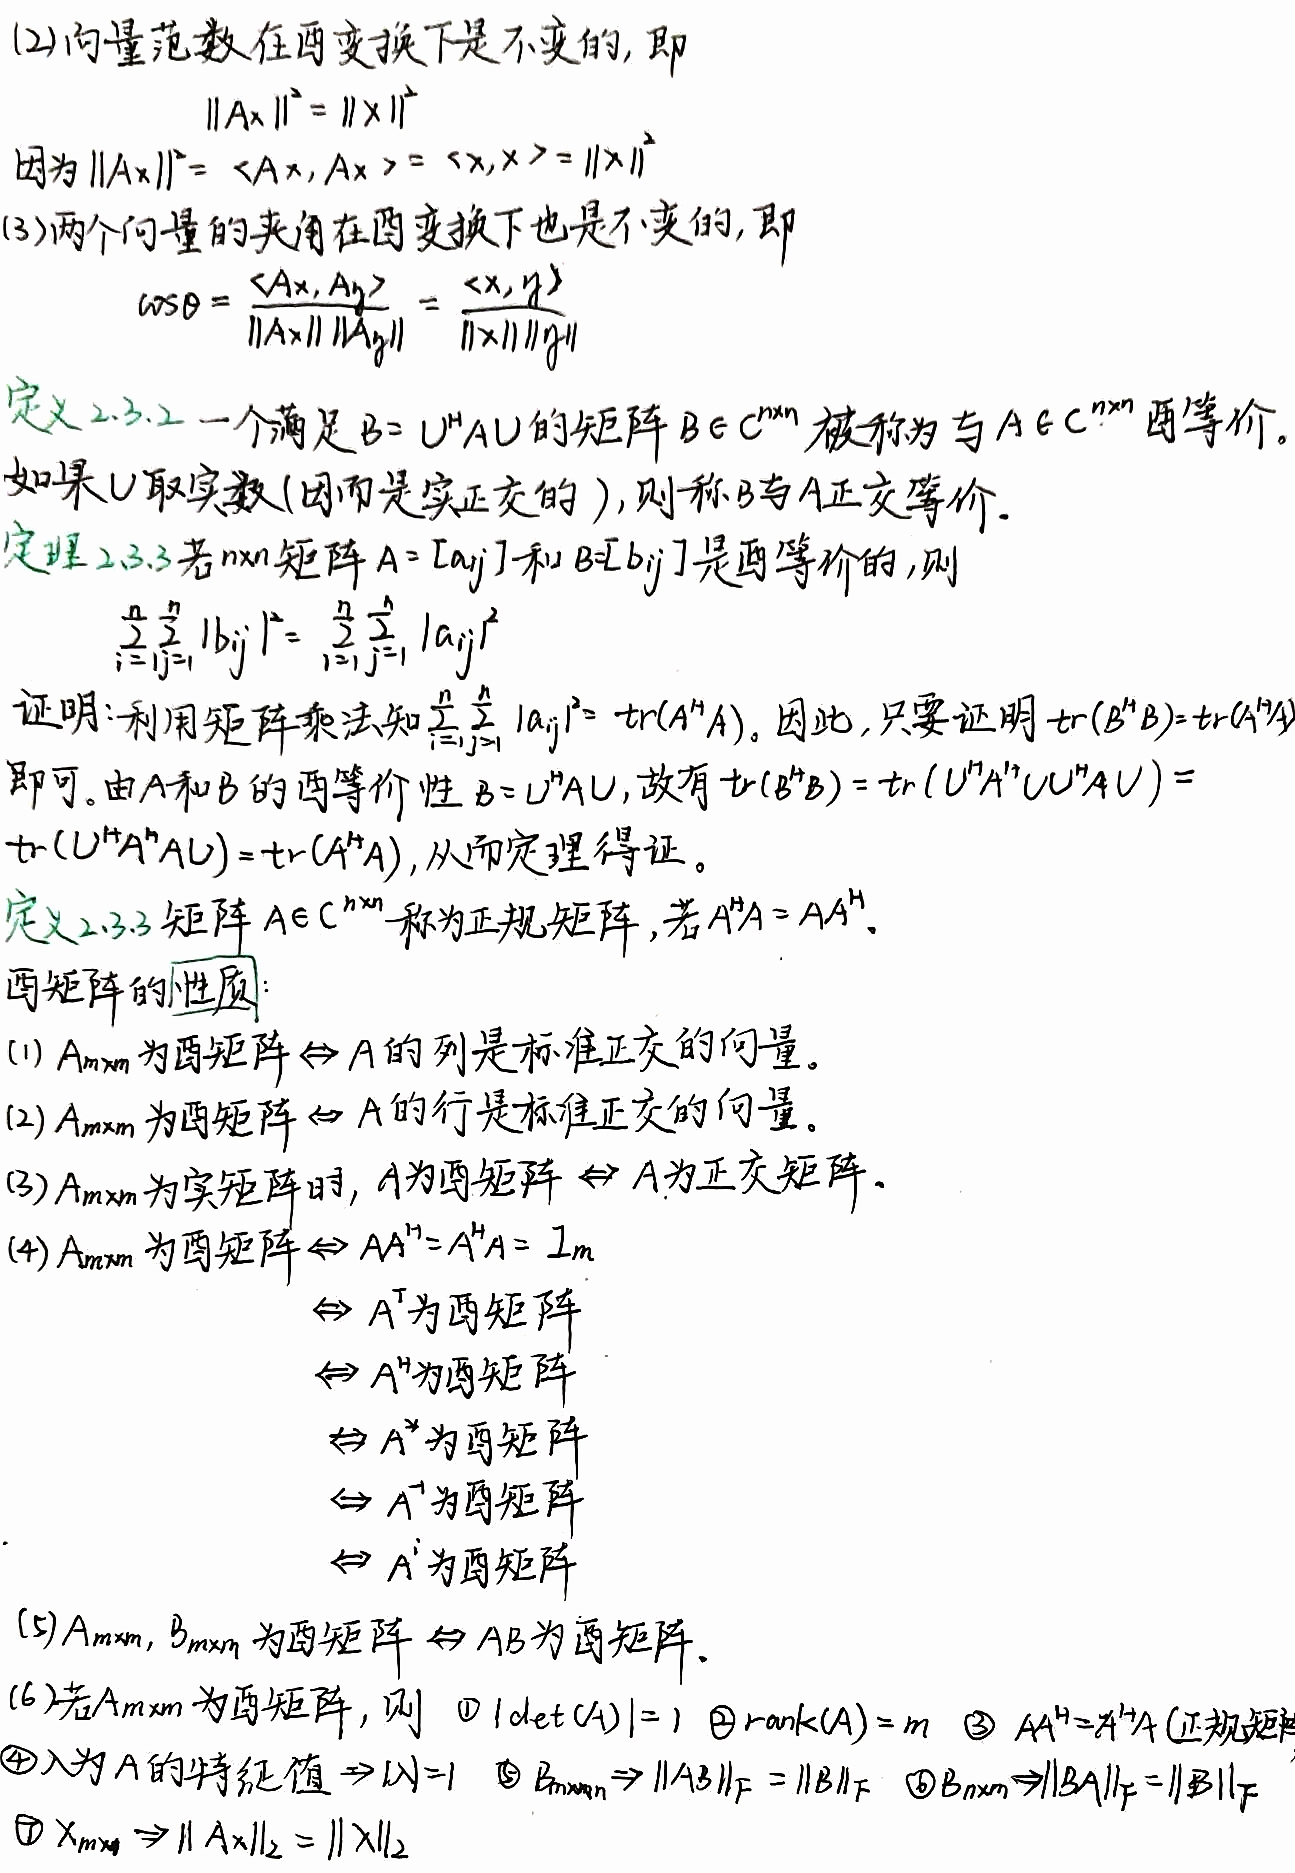 (2)向量范数在酉变换下是不变的,即
||Ax||² = ||x||²
因为||Ax||² = <Ax, Ax> = <x, x> = ||x||²
(3)两个向量的夹角在酉变换下也是不变的,即
cosθ = <Ax, Ay> / ||Ax|| ||Ay|| = <x, y> / ||x|| ||y||
定义2.3.2 一个满足B= UᴴAU的矩阵B∈Cⁿˣⁿ被称为与A∈Cⁿˣⁿ酉等价。
如果U取实数(因而是实正交的),则称B与A正交等价.
定理2.3.3若n×n矩阵A=[aij]和B=[bij]是酉等价的,则
∑ⁿᵢ₌₁∑ⁿⱼ₌₁|bij|² = ∑ⁿᵢ₌₁∑ⁿⱼ₌₁|aij|²
证明:利用矩阵乘法知∑ⁿᵢ₌₁∑ⁿⱼ₌₁|aij|² = tr(AᴴA)。因此,只要证明tr(BᴴB)=tr(AᴴA)
即可。由A和B的酉等价性B=UᴴAU,故有tr(BᴴB) = tr(UᴴAᴴUUᴴAU) =
tr(UᴴAᴴAU)=tr(AᴴA),从而定理得证。
定义2.3.3矩阵A∈Cⁿˣⁿ称为正规矩阵,若AᴴA=AAᴴ.
酉矩阵的性质:
(1) Am×m为酉矩阵⇔A的列是标准正交的向量。
(2) Am×m为酉矩阵⇔A的行是标准正交的向量。
(3) Am×m为实矩阵时, A为酉矩阵⇔A为正交矩阵.
(4) Am×m为酉矩阵⇔AAᴴ=AᴴA=Im
⇔Aᵀ为酉矩阵
⇔Aᴴ为酉矩阵
⇔A*为酉矩阵
⇔A⁻¹为酉矩阵
⇔Aⁱ为酉矩阵
(5) Am×m, Bm×m为酉矩阵⇔AB为酉矩阵.
(6)若Am×m为酉矩阵,则 ①|det(A)|=1 ②rank(A)=m ③AAᴴ=AᴴA(正规矩阵
④λ为A的特征值⇒|λ|=1 ⑤Bm×n⇒||AB||F=||B||F ⑥Bn×m⇒||BA||F=||B||F
⑦Xm×1⇒||Ax||₂=||X||₂